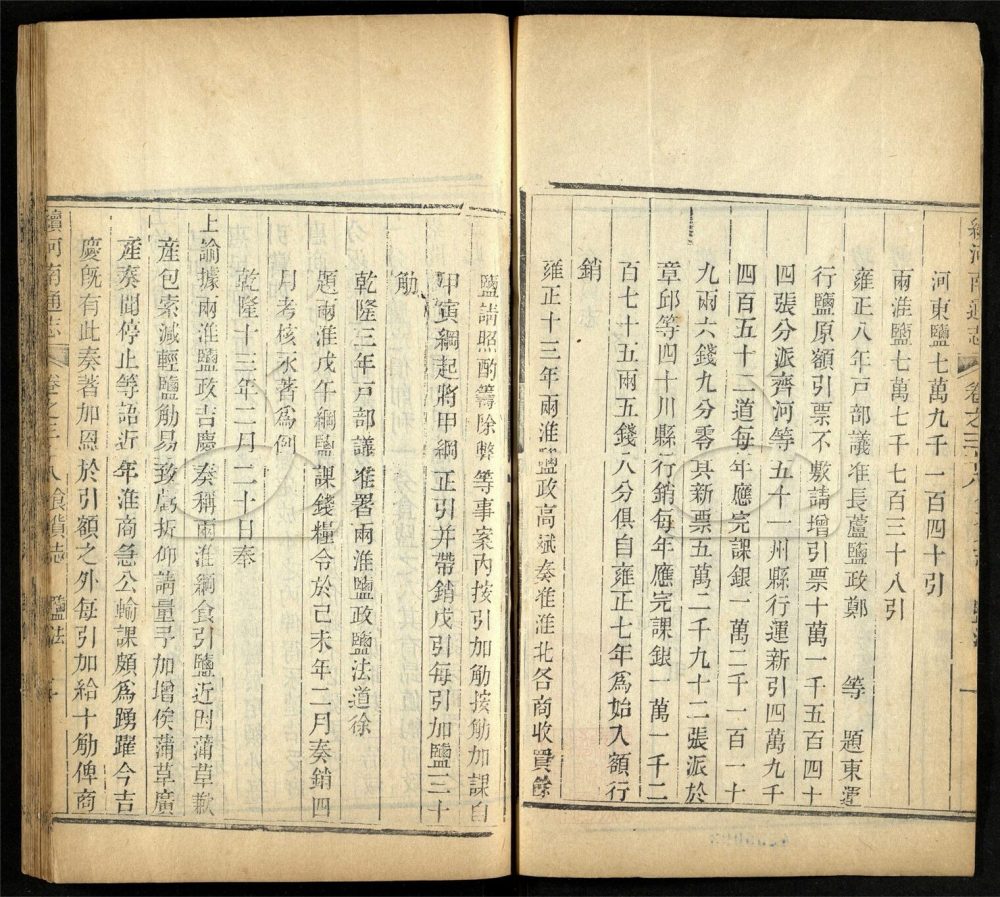 續河南通志
卷之三十八 食貨志 鹽法
河東鹽七萬九千一百四十引
兩淮鹽七萬七千七百三十八引
雍正八年戸部議准長蘆鹽政鄭 等 題東運
行鹽原額引票不敷請增引票十萬一千五百四十
四張分派齊河等五十一州縣行運新引四萬九千
四百五十二道每年應完課銀一萬二千一百一十
九兩六錢九分零其新票五萬二千九十二張派於
章邱等四十州縣行銷每年應完課銀一萬一千二
百七十五兩五錢八分俱自雍正七年爲始入額行
銷
雍正十三年兩淮鹽政高斌奏准淮北各商收買餘
鹽請照酌籌除弊等事案內按引加觔按觔加課自
甲寅綱起將甲綱正引并帶銷戊引每引加鹽三十
觔
乾隆三年戸部議准署兩淮鹽政鹽法道徐
題兩淮戊午綱鹽課錢糧令於己未年二月奏銷四
月考核永著爲例
乾隆十三年二月二十日奉
上諭據兩淮鹽政吉慶奏稱兩淮綱食引鹽近因蒲草歉
産包索減輕鹽觔易致虧折仰請量予加增俟蒲草廣
産奏聞停止等語近年淮商急公輸課頗爲踴躍今吉
慶旣有此奏著加恩於引額之外每引加給十觔俾商
續河南通志
卷之三十八食貨志 鹽法